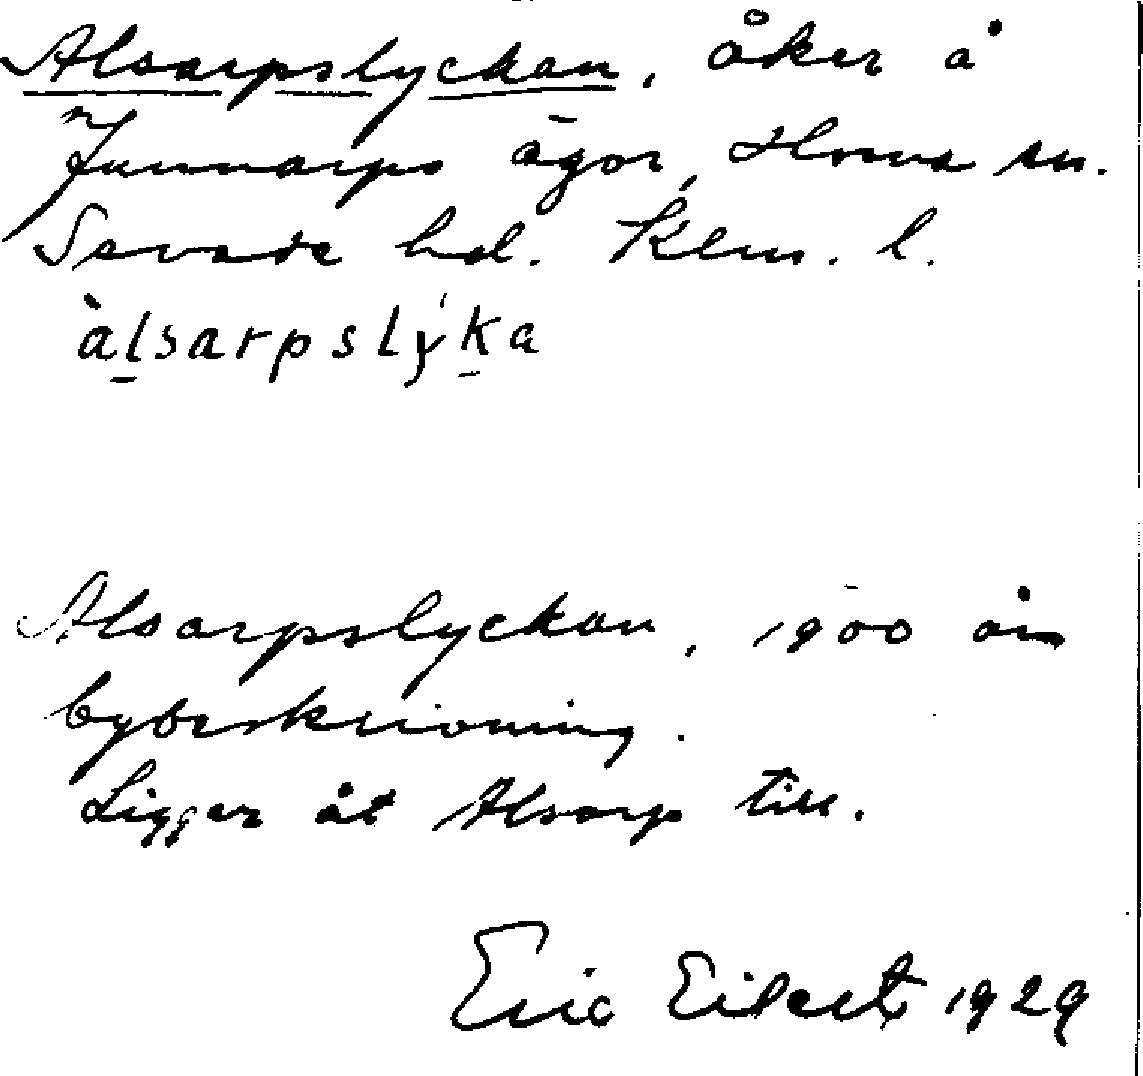 Alsarpslyckan, åker å
Junnarps ägor, Horns sn.
Sevede hd. Klm. l.
àlsarpslýka
Alsarpslyckan, 1900 års
bybeskrivning.
Ligger åt Alsarp till.
Eric Eilert 1929